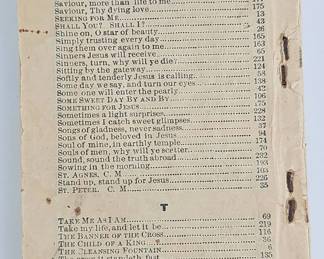 Saviour, more than life to me
Saviour, Thy dying love 175
SEEKING FOR ME 13
SHALL YOU? SHALL I? 43
Shine on, O star of beauty 26
Simply trusting every day 165
Sing them over again to me 163
Sinners Jesus will receive 65
Sinners, turn, why will ye die? 221
Sitting by the gateway 124
Softly and tenderly Jesus is calling 58
Some day we say, and turn our eyes 138
Some one will enter the pearly 42
SOME SWEET DAY BY AND BY 106
SOMETHING FOR JESUS 175
Sometimes a light surprises 228
Sometimes I catch sweet glimpses 132
Songs of gladness, never sadness 37
Sons of God, beloved in Jesus 94
Soul of mine, in earthly temple 174
Souls of men, why will ye scatter 70
Sound, sound the truth abroad 232
Sowing in the morning 193
ST. AGNES. C. M. 103
Stand up, stand up for Jesus 226
ST. PETER. C. M. 35
T
TAKE ME AS I AM 69
Take my life, and let it be 219
THE BANNER OF THE CROSS 116
THE CHILD OF A KING 36
THE CLEANSING FOUNTAIN 6
135